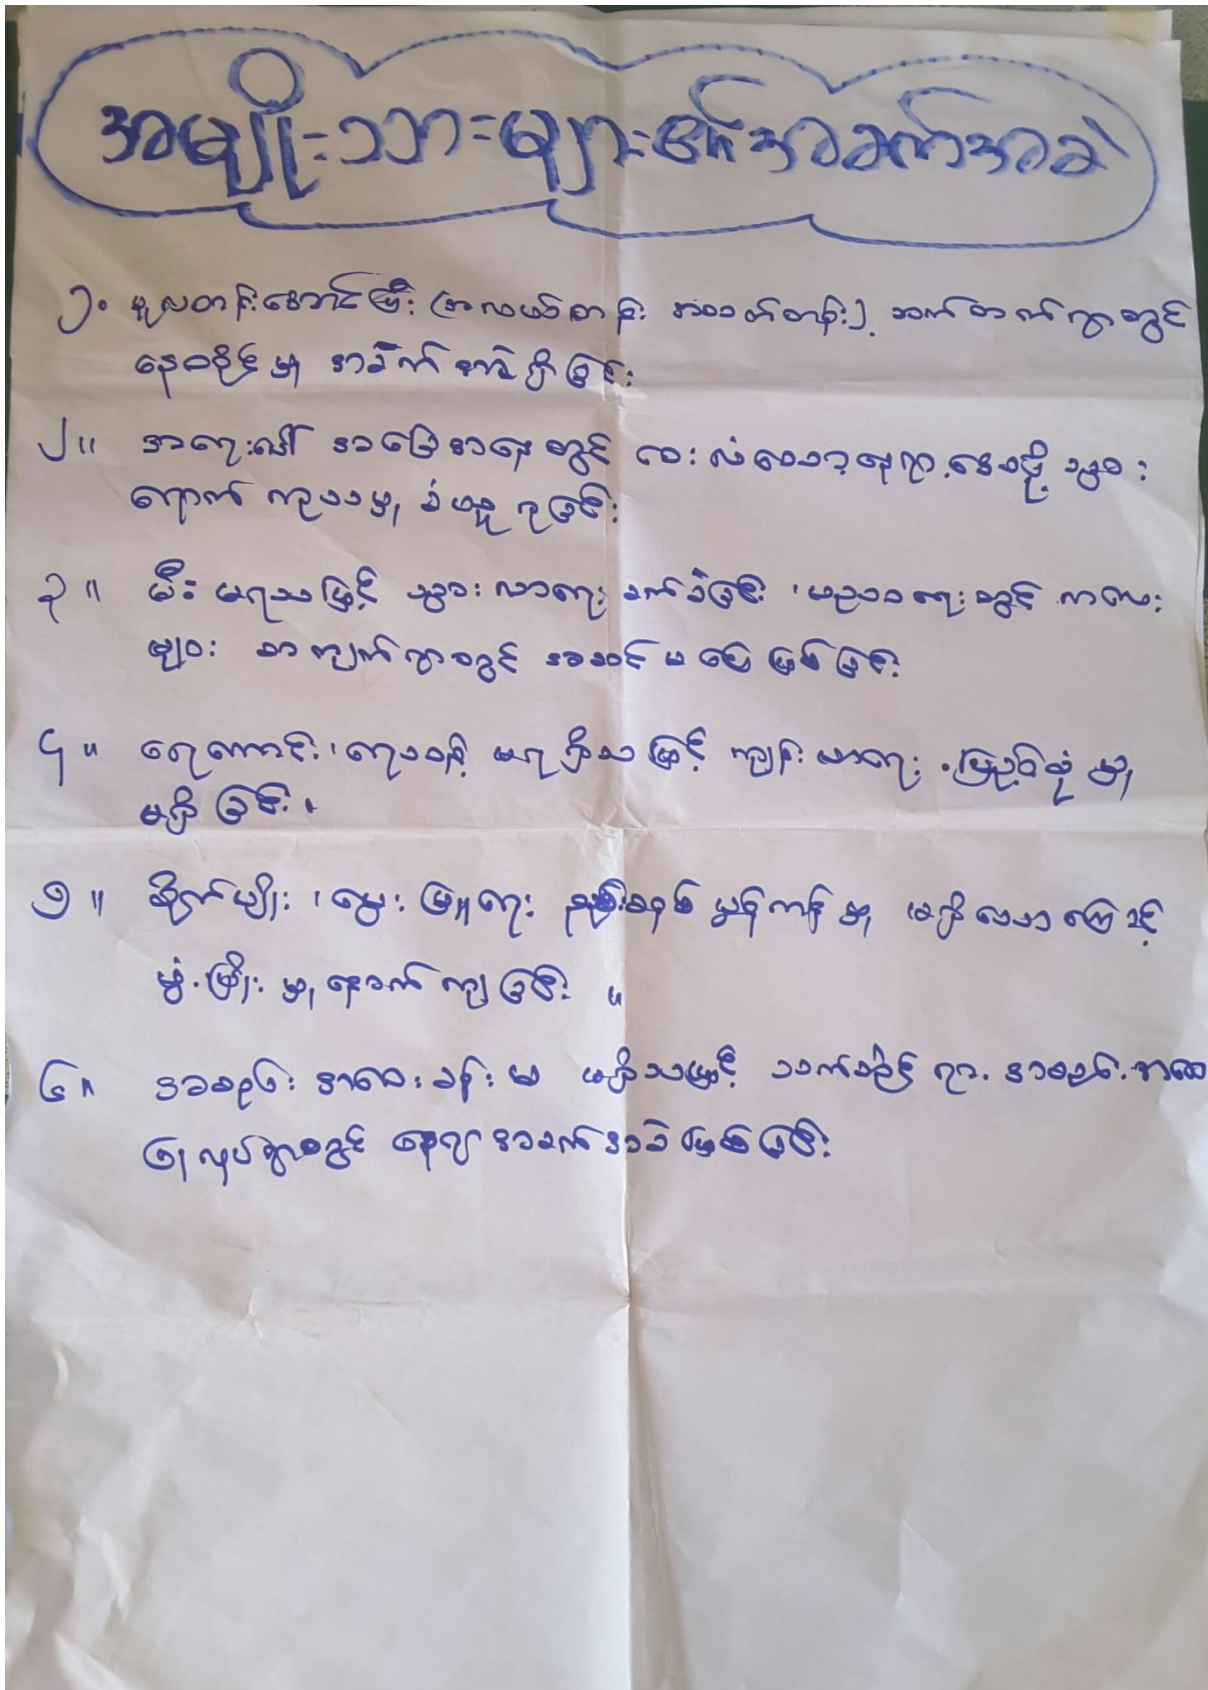 အမျိုးသားများ၏အခက်အခဲ
၁။ မူလတန်းအောင်ပြီး (အလယ်တန်း အထက်တန်း) ဆက်တက်ရာတွင်
နေထိုင်မှု အခက်အခဲရှိခြင်း
၂။ အရေးပေါ် အခြေအနေတွင် ဝေးလံသော နေရာ ဆေးရုံသို့ သွား
ရောက် ကုသမှု ခံယူရခြင်း
၃။ မီး မရသဖြင့် သွားလာရေး ခက်ခဲခြင်း ၊ ပညာရေးတွင် ကလေး
များ စာကျက်ရာတွင် အဆင်မပြေဖြစ်ခြင်း
၄။ ရေကောင်း ၊ ရေသန့် မရရှိသဖြင့် ကျန်းမာရေး ပြည့်စုံမှု
မရှိခြင်း ၊
၅။ စိုက်ပျိုး ၊ မွေးမြူရေး နည်းစနစ် မှန်ကန်မှု မရှိသောကြောင့်
ဖွံ့ဖြိုးမှု နောက်ကျခြင်း ။
၆။ အစည်းအဝေးခန်းမ မရှိသဖြင့် သက်ဆိုင်ရာ အစည်းအဝေး
ပြုလုပ်ရာတွင် နေရာ အခက်အခဲဖြစ်ခြင်း